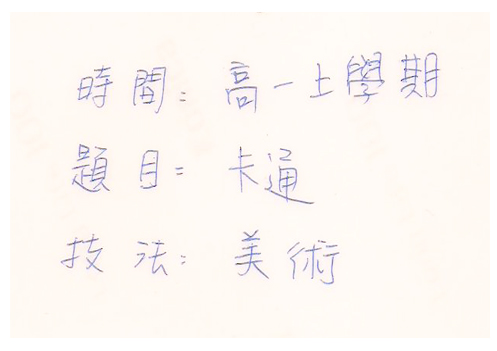 時間：高一上學期
題目：卡通
技法：美術